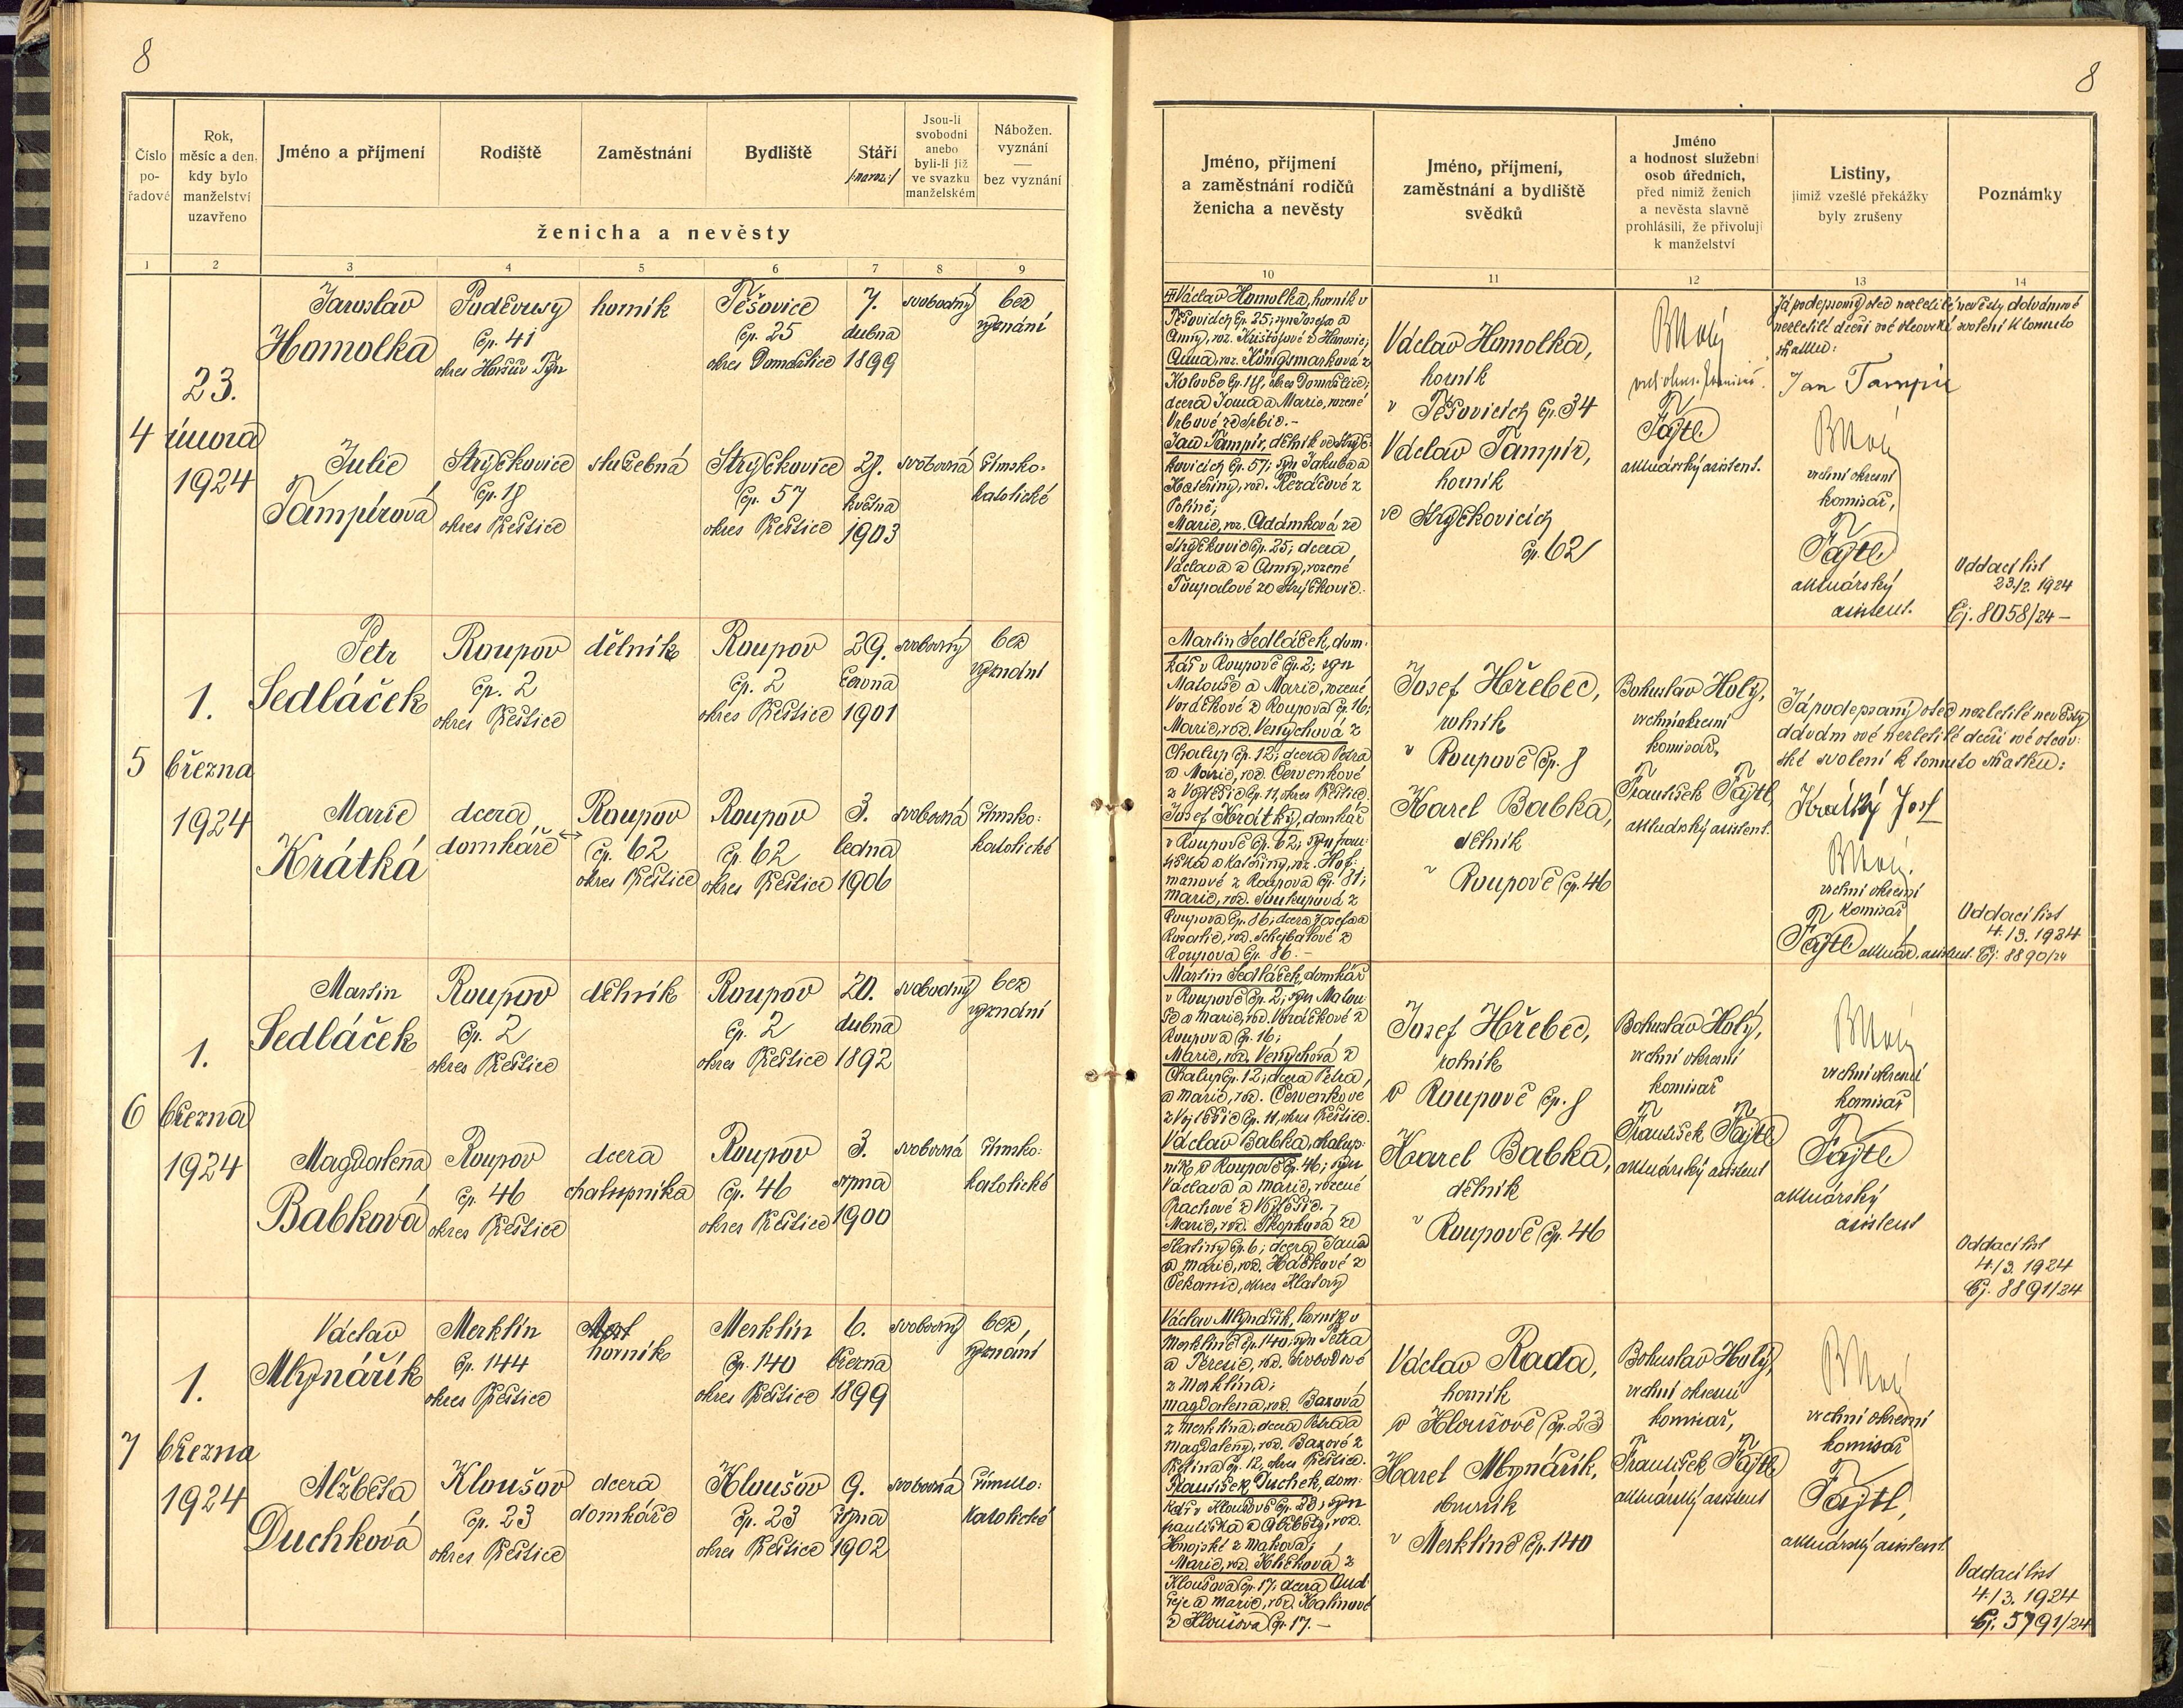 8
Číslo
po-
řadové
Rok,
měsíc a den,
kdy bylo
manželství
uzavřeno
Jméno a příjmení
Rodiště
Zaměstnání
Bydliště
Stáří
/:naroz:/
Jsou-li
svobodni
anebo
byli-li již
ve svazku
manželském
Nábožen.
vyznání
—
bez vyznání
ženicha a nevěsty
1 2 3 4 5 6 7 8 9
4
23.
února
1924
Jaroslav
Homolka
čp. 41
okres Horšův Týn
horník
Těšovice
čp. 25
okres Domažlice
7.
dubna
1899
svobodný
bez
vyznání
Julie
Tampírová
Strýčkovice
čp. 18
okres Přeštice
služebná
Strýčkovice
čp. 57
okres Přeštice
28.
května
1903
svobodná
římsko-
katolické
5
1.
března
1924
Petr
Sedláček
Roupov
čp. 2
okres Přeštice
dělník
Roupov
čp. 2
okres Přeštice
29.
června
1901
svobodný
bez
vyznání
Marie
Krátká
dcera
domkáře
Roupov
čp. 62
okres Přeštice
Roupov
čp. 62
okres Přeštice
3.
ledna
1906
svobodná
římsko-
katolické
6
1.
března
1924
Martin
Sedláček
Roupov
čp. 2
okres Přeštice
dělník
Roupov
čp. 2
okres Přeštice
20.
dubna
1892
svobodný
bez
vyznání
Magdalena
Babková
Roupov
čp. 46
okres Přeštice
dcera
chalupníka
Roupov
čp. 46
okres Přeštice
3.
srpna
1900
svobodná
římsko-
katolické
7
1.
března
1924
Václav
Mlynářík
Merklín
čp. 144
okres Přeštice
horník
Merklín
čp. 140
okres Přeštice
6.
března
1899
svobodný
bez
vyznání
Alžběta
Duchková
Kloušov
čp. 23
okres Přeštice
dcera
domkáře
Kloušov
čp. 23
okres Přeštice
9.
srpna
1902
svobodná
římsko-
katolické
8
Jméno, příjmení
a zaměstnání rodičů
ženicha a nevěsty
Jméno, příjmení,
zaměstnání a bydliště
svědků
Jméno
a hodnost služební
osob úředních,
před nimiž ženich
a nevěsta slavně
prohlásili, že přivolují
k manželství
Listiny,
jimiž vzešlé překážky
byly zrušeny
Poznámky
10 11 12 13 14
Václav Homolka, horník v
Těšovicích čp. 25; syn Josefa a
Anny, roz. Krištofové z
Anna, roz. Königsmarková z
Koloveč čp. 118, okres Domažlice;
dcera Jana a Marie, rozené
Vrbové ze Srbic.-
Jan Tampír, dělník ve Strýč-
kovicích čp. 57; syn Jakuba a
Kateřiny, roz. Řezáčové z
Marie, roz. Adámková ze
Strýčkovic čp. 25; dcera
Václava a Anny, rozené
Toupalové ze Strýčkovic.-
Václav Homolka,
horník
v Těšovicích čp. 34
Václav Tampír,
horník
ve Strýčkovicích
čp. 62
BHolý
Fajtl
aktuárský asistent.
Já podepsaný otec nezletilé nevěsty dávám své
nezletilé dceři své otcovské svolení k tomuto
sňatku:
Jan Tampír
BHolý
vrchní okresní
komisař,
Fajtl
aktuárský
asistent.
Oddací list
23./2. 1924
Čj. 8058/24 –
Martin Sedláček, dom-
kář v Roupově čp. 2; syn
Matouše a Marie, rozené
Voráčkové z Roupova čp. 16;
Marie, roz. Venychová z
Chalup čp. 12; dcera Petra
a Marie, roz. Červenkové
z čp. 11, okres Přeštice.
Josef Krátký, domkář
v Roupově čp. 62; syn Fran-
tiška a Kateřiny, roz. Hof-
manové z Roupova čp. 81;
Marie, roz. Soukupová z
Roupova čp. 86; dcera Josefa a
Rosalie, roz. Schejbalové z
Roupova čp. 86. -
Josef Hřebec,
rolník
v Roupově čp. 8
Karel Babka,
dělník
v Roupově čp. 46
Bohuslav Holý,
vrchní okresní
komisař,
František Fajtl,
aktuárský asistent.
Já podepsaný otec nezletilé nevěsty
dávám své nezletilé dceři své otcov-
ské svolení k tomuto sňatku:
Krátký Josef
BHolý.
vrchní okresní
komisař
Fajtl aktuár. asistent.
Oddací list
4./3. 1924
Čj. 8890/24
Martin Sedláček, domkář
v Roupově čp. 2; syn Matou-
še a Marie, roz. Voráčkové z
Roupova čp. 16;
Marie, roz. Venychová z
Chalup čp. 12; dcera Petra
a Marie, roz. Červenkové
z čp. 11, okres Přeštice.
Václav Babka, chalup-
ník, v Roupově čp. 46; syn
Václava a Marie, rozené
Prachové z
Marie, roz. Skopková ze
Slatiny čp. 6; dcera Jana
a Marie, roz. Háčkové z
Čekanic, okres Klatovy
Josef Hřebec,
rolník
v Roupově čp. 8
Karel Babka,
dělník
v Roupově čp. 46
Bohuslav Holý,
vrchní okresní
komisař
František Fajtl
aktuárský asistent
BHolý
vrchní okresní
komisař
Fajtl
aktuárský
asistent
Oddací list
4./3. 1924
Čj. 8891/24
Václav Mlynářík, horník v
Merklíně čp. 140; syn Petra
a Terezie, roz. Svobodové
z Merklína;
Magdalena, roz. Baxová
z Merklína; dcera Petra a
Magdaleny, roz. Baxové z
čp. 12, okres Přeštice.
František Duchek, dom-
kář v Kloušově čp. 23; syn
Františka a Alžběty, roz.
Hnojské z Makova;
Marie, roz. Klečková z
Kloušova čp. 17; dcera Ond-
řeje a Marie, roz. Kalinové
z Kloušova čp. 17. –
Václav Rada,
horník
v Kloušově čp. 23
Karel Mlynářík,
v Merklíně čp. 140
Bohuslav Holý,
vrchní okresní
komisař,
František Fajtl
aktuárský asistent
BHolý
vrchní okresní
komisař
Fajtl,
aktuárský asistent.
Oddací list
4./3. 1924
Čj. 5791/24